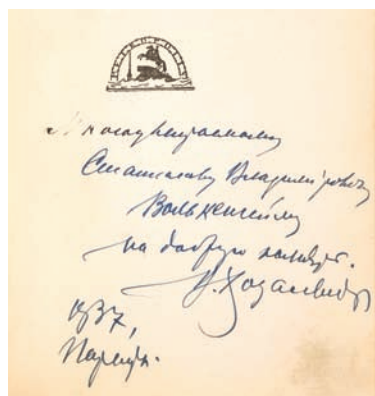 Многоуважаемому
Станиславу Владимiровичу
Волькенштейну
на добрую память.
В. Ходасевич
1937,
Париж.